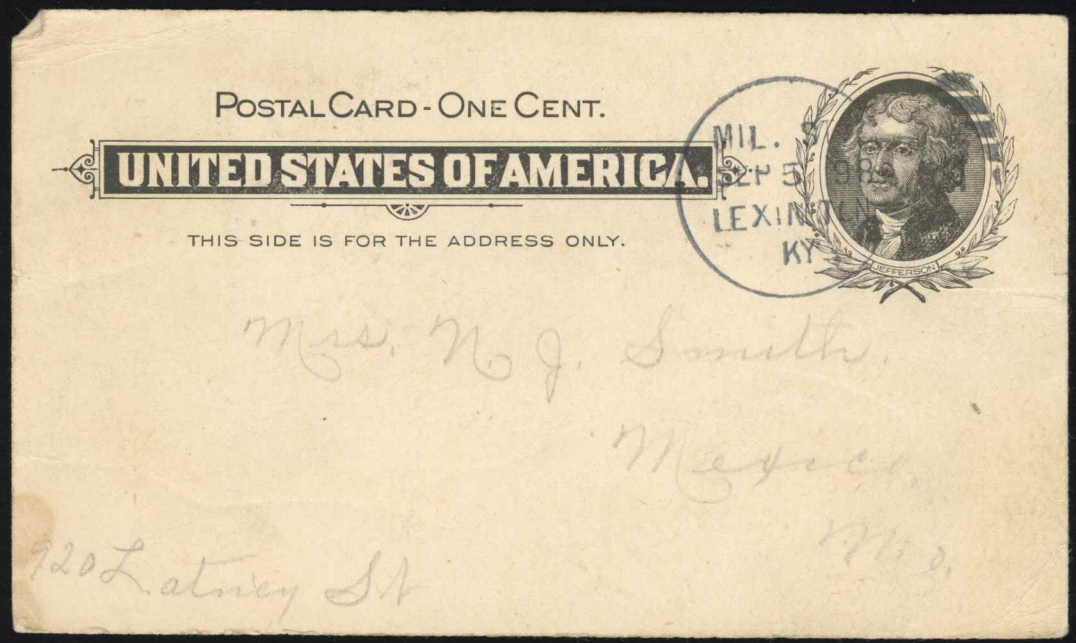 POSTAL CARD - ONE CENT.
UNITED STATES OF AMERICA.
THIS SIDE IS FOR THE ADDRESS ONLY.
MIL. S
SEP 5 98
LEXINTON
KY
JEFFERSON
Mrs. N. J. Smith.
Mexico,
Mo.
920 Latney St